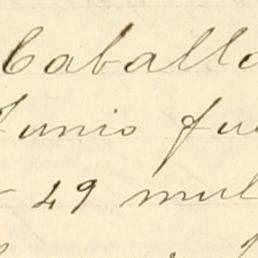 Caballo
Junio fu
29 mul